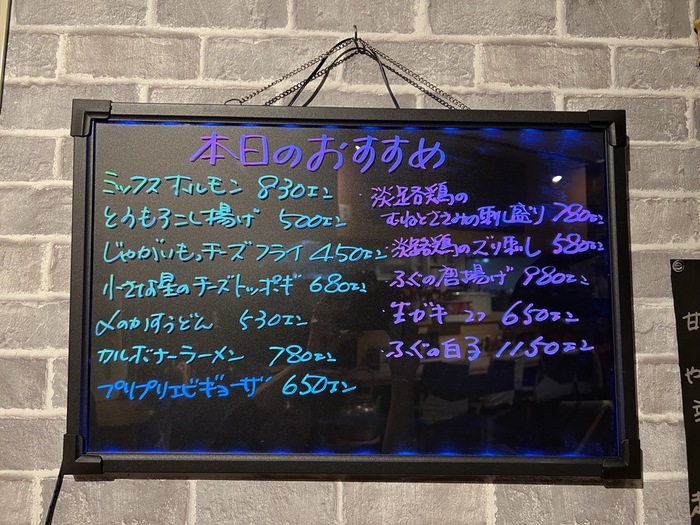 本日のおすすめ
ミックスホルモン 830エン
とうもろこし揚げ 500エン
じゃがいもっチーズフライ 450エン
小さな星のチーズトッポギ 680エン
〆のかすうどん 530エン
カルボナーラーメン 780エン
プリプリエビギョーザ 650エン
・淡路鶏の
むねとささみの刺し盛り 780エン
・淡路鶏のズリ刺し 580エン
・ふぐの唐揚げ 980エン
・生ガキ 2コ 650エン
・ふぐの白子 1150エン
甘
や